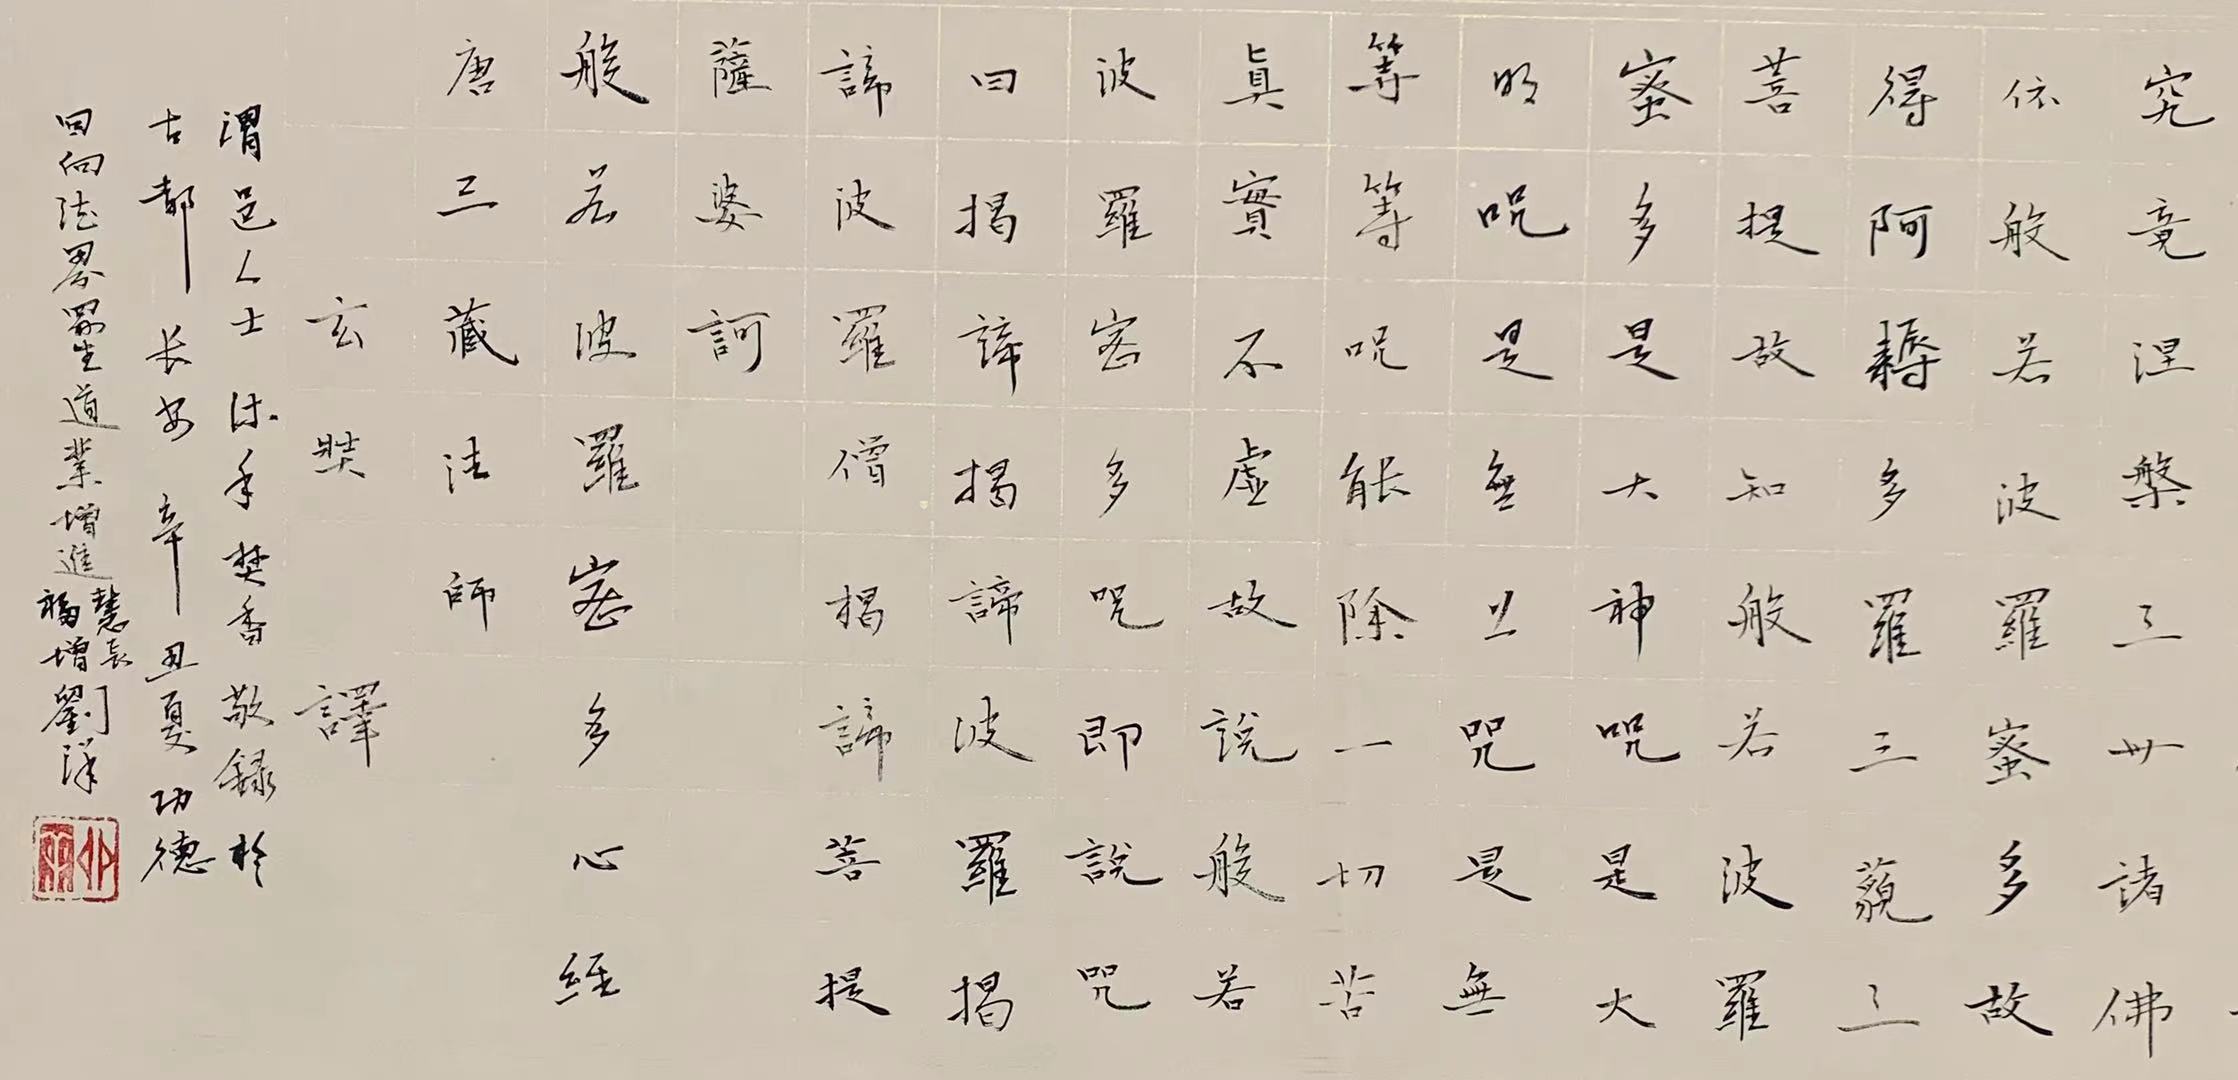 究竟涅槃三世諸佛
依般若波羅蜜多故
得阿耨多羅三藐三
菩提故知般若波羅
蜜多是大神咒是大
明咒是無上咒是無
等等咒能除一切苦
真實不虛故說般若
波羅密多咒即說咒
曰揭諦揭諦波羅揭
諦波羅僧揭諦菩提
薩婆訶
般若波羅密多心經
唐三藏法師
玄奘譯
渭邑人士沐手焚香敬録於
古都长安辛丑夏功德
回向法界眾生道業增進
慧長
福增劉洋